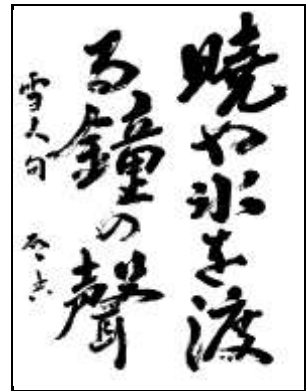 暁や氷を渡
る鐘の聲
雪人句